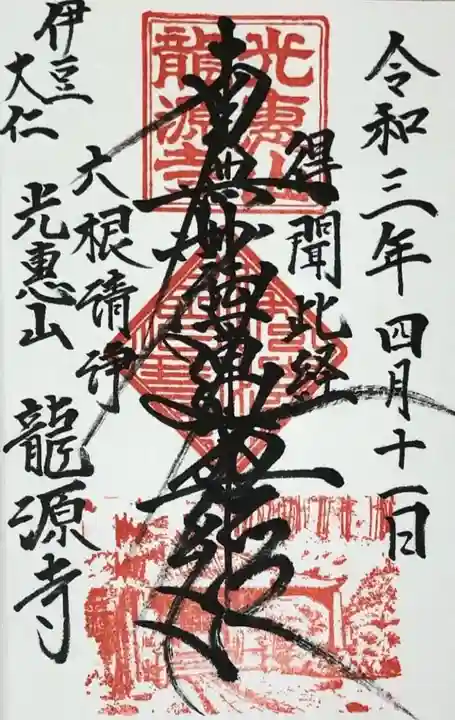 令和三年四月十一日
得聞此経
南無妙法蓮華経
六根清浄
伊豆
大仁
光恵山
龍源寺
光恵山
龍源寺